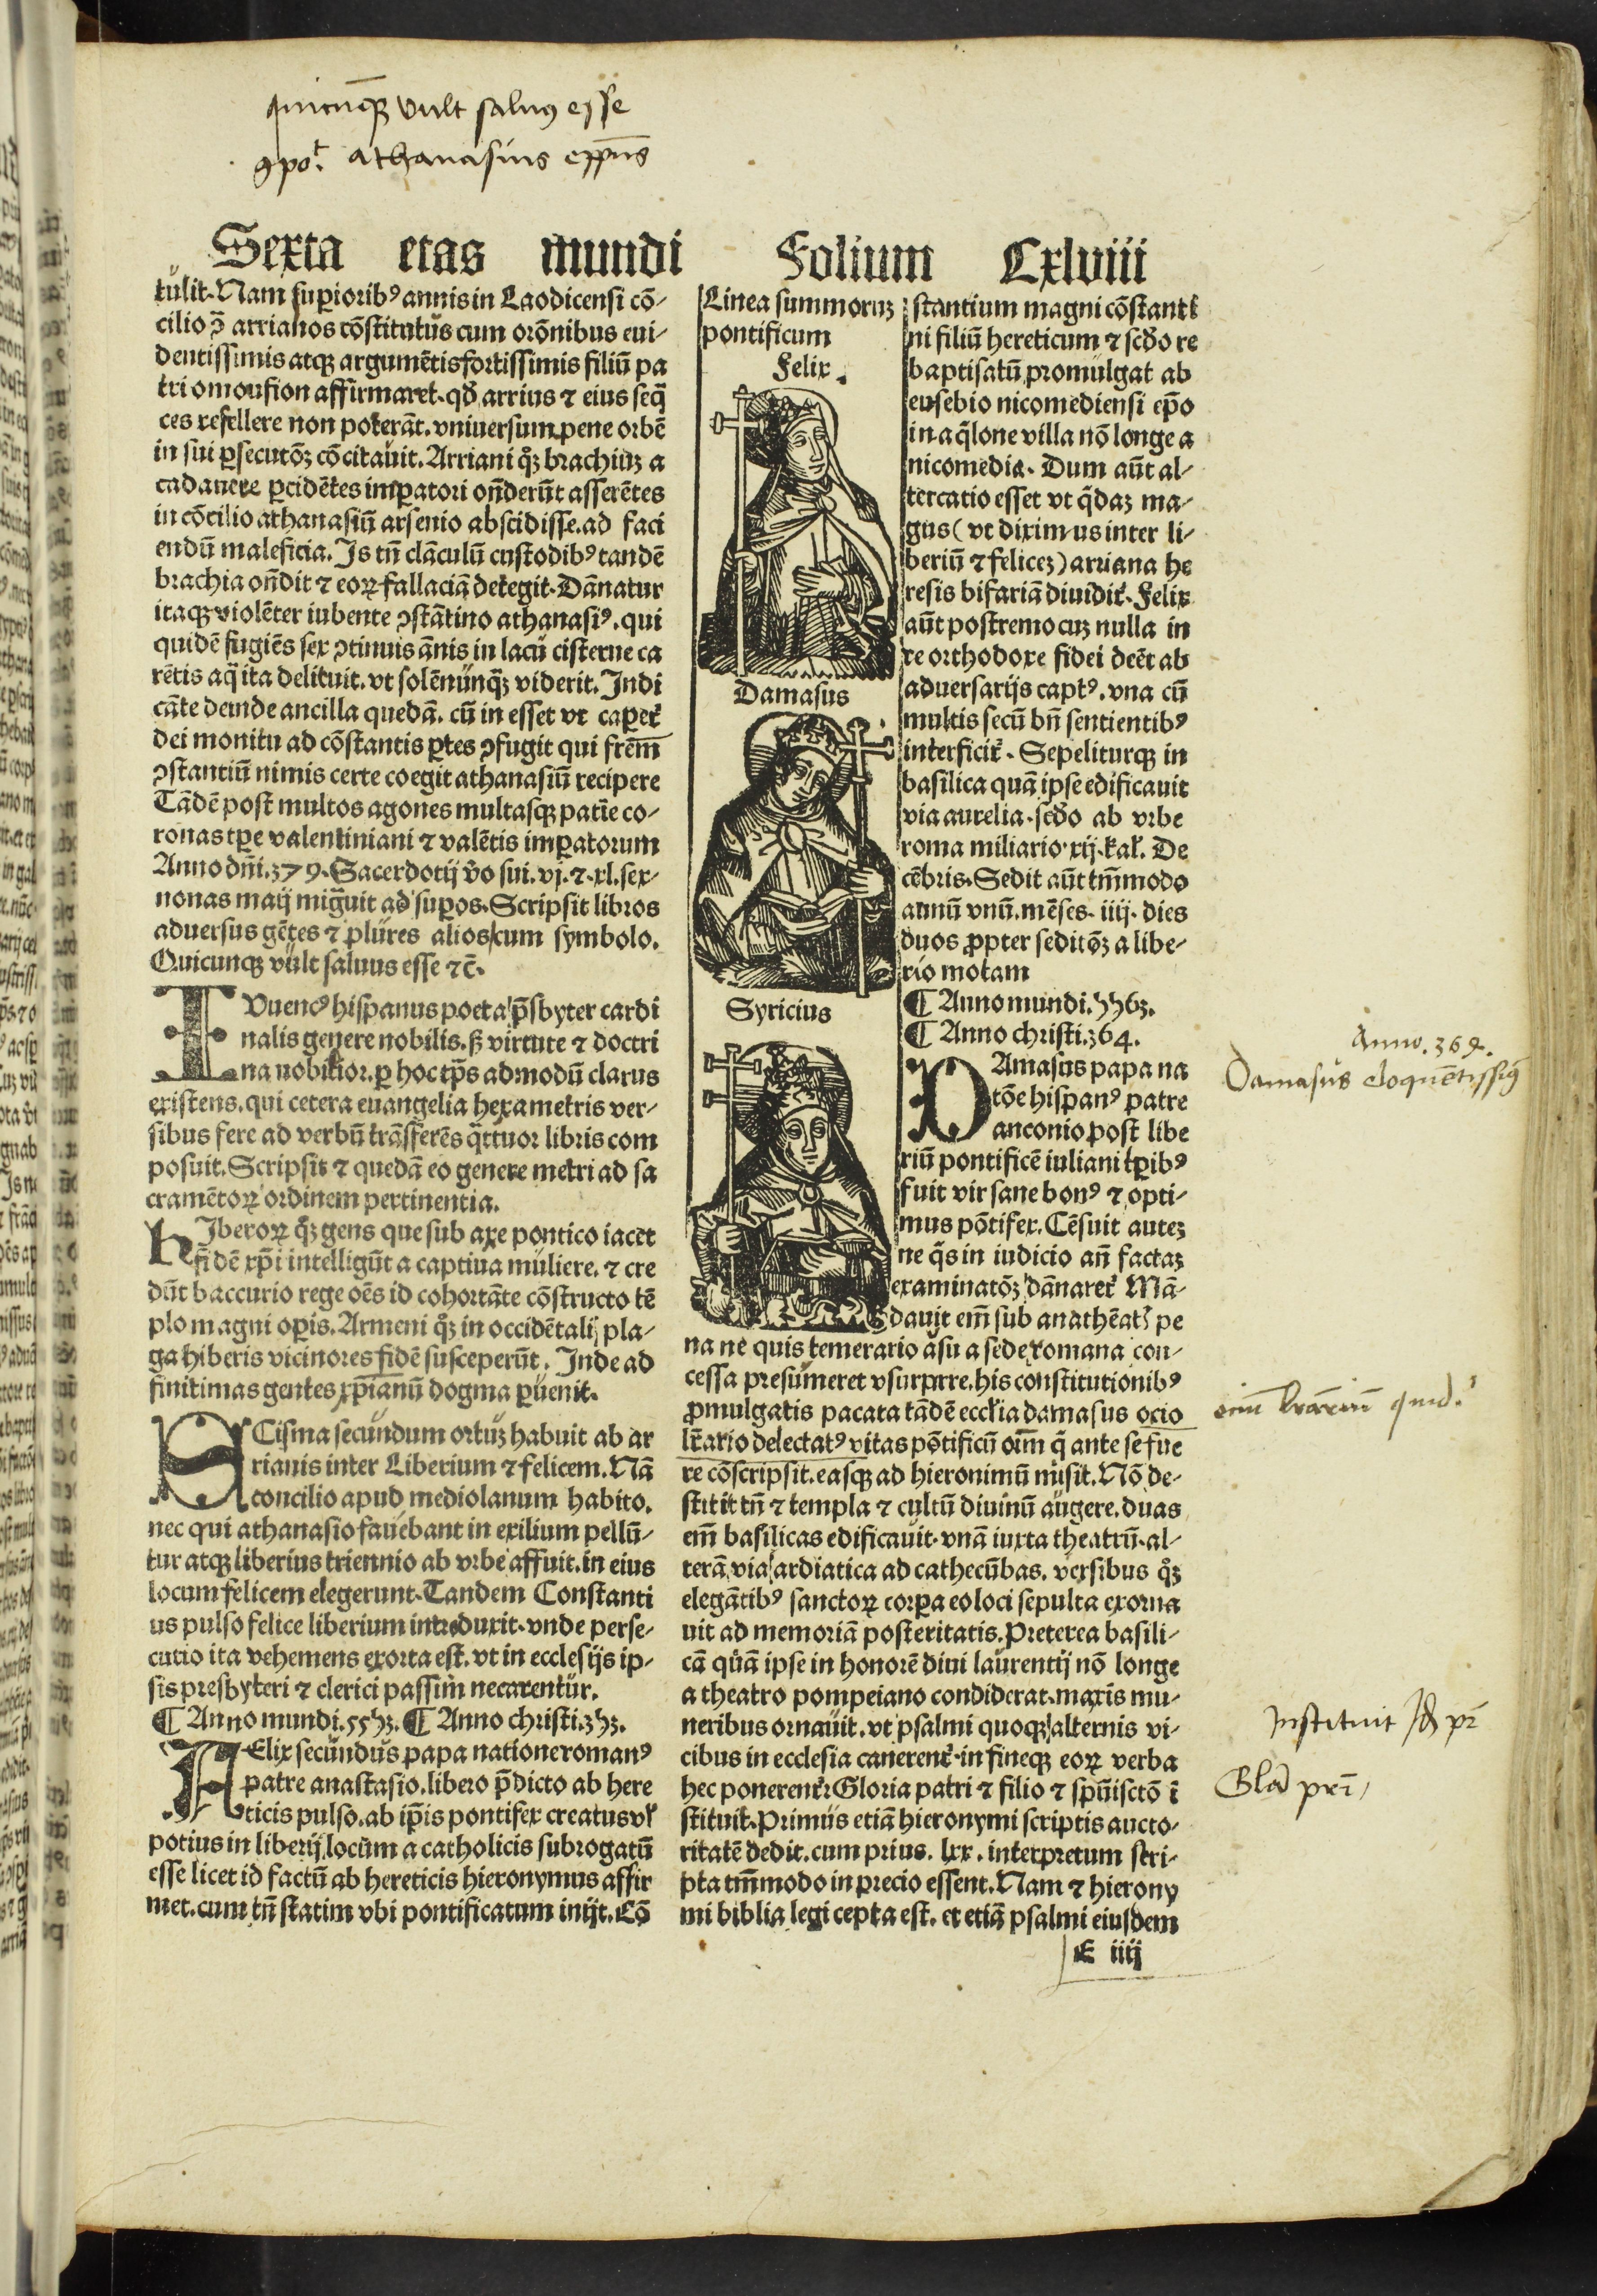 quicunqꝫ vult saluꝰ esse
ꝯpo.t athanasius epp̄us
Sexta etas mundi Folium Cxlviiii
tulit. Nam supioribꝰ annis in Laodicensi cō-
cilio ꝯ̄ arrianos cōstitutus cum orōnibus eui-
dentissimis atqꝫ argumētis fortissimis filiū pa
tri omousion affirmaret. qd̄ arrius ⁊ eius seq̄
ces refellere non poterāt. vniuersum pene orbē
in sui ꝑsecutōꝫ cōcitauit. Arriani qͦꝫ brachiuꝫ a
cadauere ꝓcidētes imꝑatori on̄derūt asserētes
in cōcilio athanasiū arsenio abscidisse. ad faci
endū maleficia. Is tn̄ clāculū custodibꝰ tandē
brachia on̄dit ⁊ eoꝝ fallaciā detegit. Dānatur
itaqꝫ violēter iubente ꝯstātino athanasiꝰ. qui
quidē fugiēs sex ꝯtinuis ānis in lacū cisterne ca
rētis aq̄ ita delituit. vt solē nūnqꝫ viderit. Indi
cāte deinde ancilla quedā. cū in esset vt caperet
dei monitu ad cōstantis ꝑtes ꝯfugit qui frēm
ꝯstantiū nimis certe coegit athanasiū recipere
Tādē post multos agones multasqꝫ patīe co-
ronas tꝑe valentiniani ⁊ valētis imꝑatorum
Anno dn̄i. 379. Sacerdotij v̄o sui. vj. ⁊. xl. sex-
nonas maij mig̃uit ad suꝑos. Scripsit libros
aduersus gētes ⁊ plures alios cum symbolo.
Quicunqꝫ vult saluus esse ⁊c̄.
IVuencꝰ hispanus poeta p̄sbyter cardi
nalis genere nobilis. sꝫ virtute ⁊ doctri
na nobilior. ꝑ hoc tp̄s admodū clarus
existens. qui cetera euangelia hexametris ver-
sibus fere ad verbū trāsferēs q̄ttuor libris com
posuit. Scripsit ⁊ quedā eo genere metri ad sa
cramētoꝝ ordinem pertinentia.
hIberoꝝ qͦꝫ gens que sub axe pontico iacet
fidē xp̄i intelligūt a captiua muliere. ⁊ cre
dūt baccurio rege oēs id cohortāte cōstructo tē
plo magni oꝑis. Armeni qͦꝫ in occidētali pla-
ga hiberis vicinores fidē susceperūt. Inde ad
finitimas gentes xp̄ianū dogma ꝑuenit.
SCisma secundum ortuꝫ habuit ab ar
rianis inter Liberium ⁊ felicem. Nā
concilio apud mediolanum habito.
nec qui athanasio fauebant in exilium pellū-
tur atqꝫ liberius triennio ab vrbe affuit. in eius
locum felicem elegerunt. Tandem Constanti
us pulso felice liberium introduxit. vnde perse-
cutio ita vehemens exorta est. vt in ecclesijs ip-
sis presbyteri ⁊ clerici passim necarentur.
¶ Anno mundi. 55hꝫ. ¶ Anno christi. 3hꝫ.
FElix secundus papa natione romanꝰ
patre anastasio. libero p̄dicto ab here
ticis pulso. ab ip̄is pontifex creatus vl̓
potius in liberij locum a catholicis subrogatū
esse licet id factū ab hereticis hieronymus affir
met. cum tn̄ statim vbi pontificatum inijt. Cō
Linea summoruꝫ
pontificum
Felix.
Damasus
Syricius
stantium magni cōstanti
ni filiū hereticum ⁊ scd̄o re
baptisatū promulgat ab
eusebio nicomediensi ep̄o
in aq̄lone villa nō longe a
nicomedia. Dum aūt al-
tercatio esset vt q̄daꝫ ma-
gus (vt diximus inter li-
beriū ⁊ feliceꝫ) arriana he
resis bifariā diuidit. Felix
aūt postremo cuꝫ nulla in
re orthodoxe fidei deēt ab
aduersarijs captꝰ. vna cū
multis secū bn̄ sentientibꝰ
interficit. Sepeliturqꝫ in
basilica quā ipse edificauit
via aurelia. scd̄o ab vrbe
roma miliario. xij. kal̓. De
cēbris. Sedit aūt tm̄modo
annū vnū. mēses. iiij. dies
duos ꝓpter seditōꝫ a libe-
rio motam
¶ Anno mundi. 5563.
¶ Anno christi. 364.
DAmasus papa na
tōe hispanꝰ patre
anconio post libe
riū pontificē iuliani tꝑibꝰ
fuit vir sane bonꝰ ⁊ opti-
mus pōtifex. Cēsuit auteꝫ
ne q̄s in iudicio an̄ factaꝫ
examinatōꝫ dānaret. Mā-
dauit em̄ sub anathēatꝭ pe
na ne quis temerario asu a sede romana con-
cessa presumeret vsurprre. his constitutionibꝰ
ꝓmulgatis pacata tādē eccl̓ia damasus ocio
lr̄ario delectatꝰ vitas pōtificū oīm q̄ ante se fue
re cōscripsit. easqꝫ ad hieronimū misit. Nō de-
stitit tn̄ ⁊ templa ⁊ cultū diuinū augere. duas
em̄ basilicas edificauit. vnā iuxta theatrū. al-
terā via ardiatica ad cathecūbas. versibus qͦꝫ
elegātibꝰ sanctoꝝ corꝑa eo loci sepulta exorna
uit ad memoriā posteritatis. Preterea basili-
cā quā ipse in honorē diui laurentij nō longe
a theatro pompeiano condiderat. maxīs mu-
neribus ornauit. vt psalmi quoqꝫ alternis vi-
cibus in ecclesia canerent. in fineqꝫ eoꝝ verba
hec ponerent: Gloria patri ⁊ filio ⁊ spūi sctō ī
stituit. Primus etiā hieronymi scriptis aucto-
ritatē dedit. cum prius. lxx. interpretum scri-
pta tm̄modo in precio essent. Nam ⁊ hierony
mi biblia legi cepta est. et etiā psalmi eiusdem
E iiij
Anno. 369.
Damasus eloquētissiꝰ
Instituit
Gl̄a pr̄i